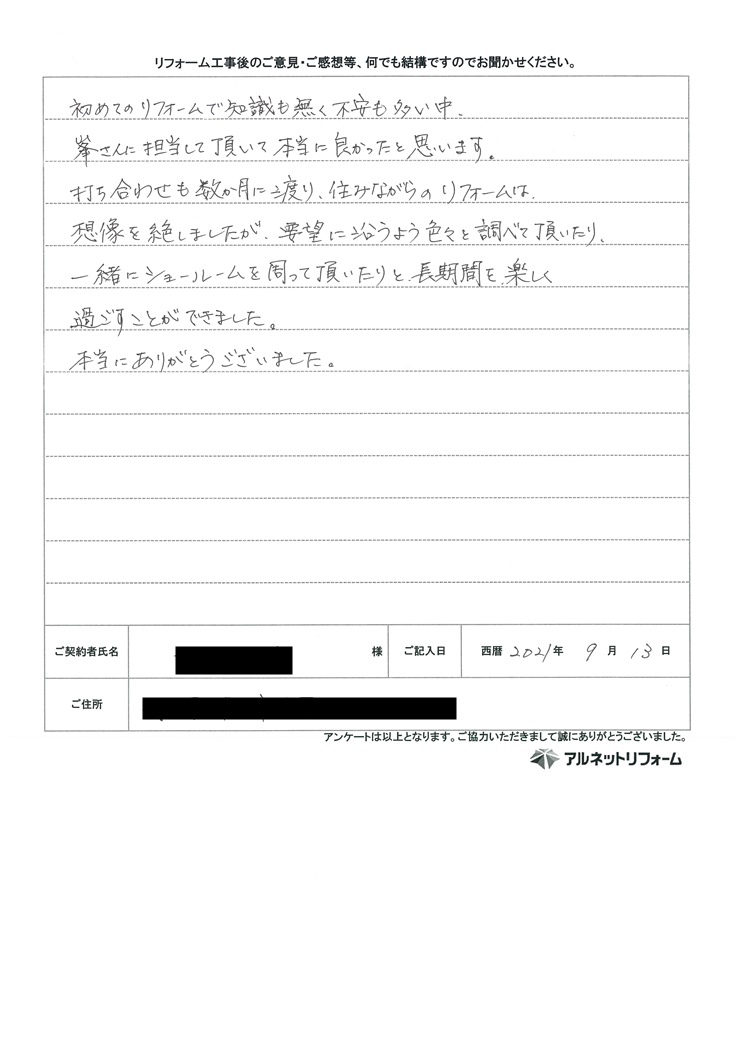 リフォーム工事後のご意見・ご感想等、何でも結構ですのでお聞かせください。
初めてのリフォームで知識も無く不安も多い中、
峯さんに担当して頂いて本当に良かったと思います。
打ち合わせも数か月に渡り、住みながらのリフォームは、
想像を絶しましたが、要望に沿うよう色々と調べて頂いたり、
一緒にショールームを周って頂いたりと、長期間を楽しく
過ごすことができました。
本当にありがとうございました。
ご契約者氏名 様 ご記入日 西暦 2021年 9月 13日
ご住所
アンケートは以上となります。ご協力いただきまして誠にありがとうございました。
アルネットリフォーム